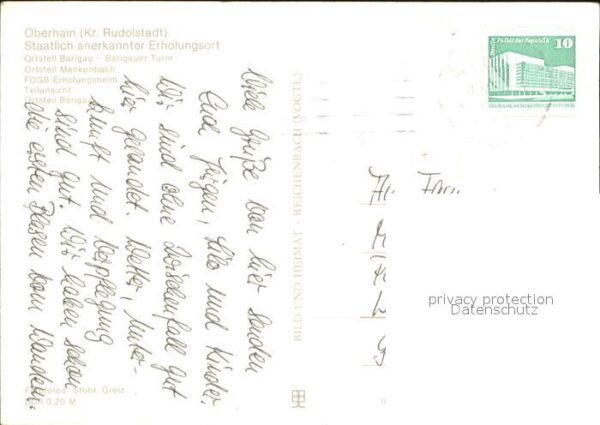 Oberhain (Kr. Rudolstadt)
Staatlich anerkannter Erholungsort
Ortsteil Barigau - Barigauer Turm
Ortsteil Mankenbach
FDGB-Erholungsheim
Teilansicht
Ortsteil Barigau
Viele Grüße von hier senden
Euch Jürgen, Lilo und Kinder.
Wir sind ohne Zwischenfall gut
hier gelandet. Wetter, Unter-
kunft und Verpflegung
sind gut. Wir haben schon
die ersten Blasen vom Wandern.
Fotos: Stöhr, Greiz
0,20 M
BILD UND HEIMAT · REICHENBACH (VOGTL)
Berlin, Palast der Republik
10
DEUTSCHE DEMOKRATISCHE REPUBLIK
Fam
privacy protection
Datenschutz